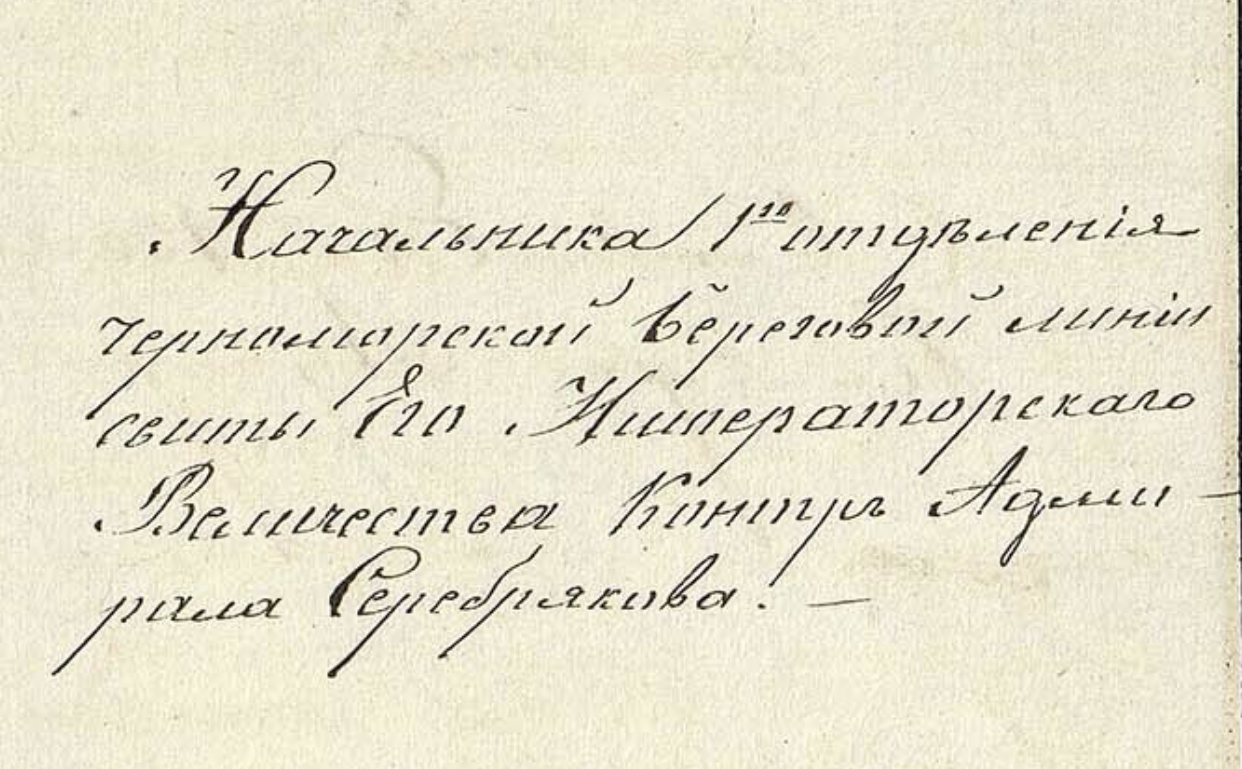 Начальника 1го отдѣленія
Черноморской Береговой линіи
свиты Его Императорскаго
Величества Контръ Адми-
рала Серебрякова. —